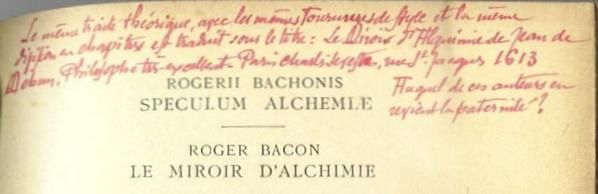 Le même traité théorique, avec les mêmes tournures de style et la même
division en chapitres est traduit sous le titre : Le Miroir d'Alquimie de Jean de
Mehun, Philosophe très excellent. Paris Charles Sevestre, rue St Jaques 1613
Auquel de ces auteurs en
revient la paternité ?
ROGERII BACHONIS
SPECULUM ALCHEMIÆ
ROGER BACON
LE MIROIR D'ALCHIMIE